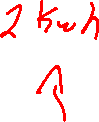 2 Kwh